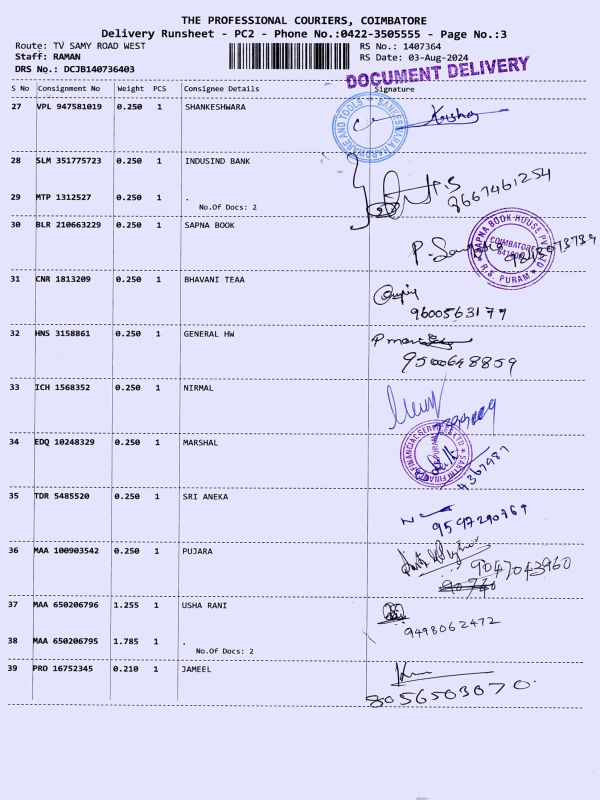 THE PROFESSIONAL COURIERS, COIMBATORE
Delivery Runsheet - PC2 - Phone No.:0422-3505555 - Page No.:3
Route: TV SAMY ROAD WEST RS No.: 1407364
Staff: RAMAN RS Date: 03-Aug-2024
DRS No.: DCJB140736403
DOCUMENT DELIVERY
S No Consignment No Weight PCS Consignee Details Signature
27 VPL 947581019 0.250 1 SHANKESHWARA
SANKESWARA HARDWARE AND TOOLS
28 SLM 351775723 0.250 1 INDUSIND BANK
P.S
8667461254
29 MTP 1312527 0.250 1 .
No.Of Docs: 2
30 BLR 210663229 0.250 1 SAPNA BOOK
SAPNA BOOK HOUSE PVT LTD
COIMBATORE
R.S. PURAM
31 CNR 1813209 0.250 1 BHAVANI TEAA
9600563177
32 HNS 3158861 0.250 1 GENERAL HW
9500648859
33 ICH 1568352 0.250 1 NIRMAL
34 EDQ 10248329 0.250 1 MARSHAL
35 TDR 5485520 0.250 1 SRI ANEKA
9597290769
36 MAA 100903542 0.250 1 PUJARA
9047043960
37 MAA 650206796 1.255 1 USHA RANI
9498062472
38 MAA 650206795 1.785 1 .
No.Of Docs: 2
39 PRO 16752345 0.210 1 JAMEEL
8056503070